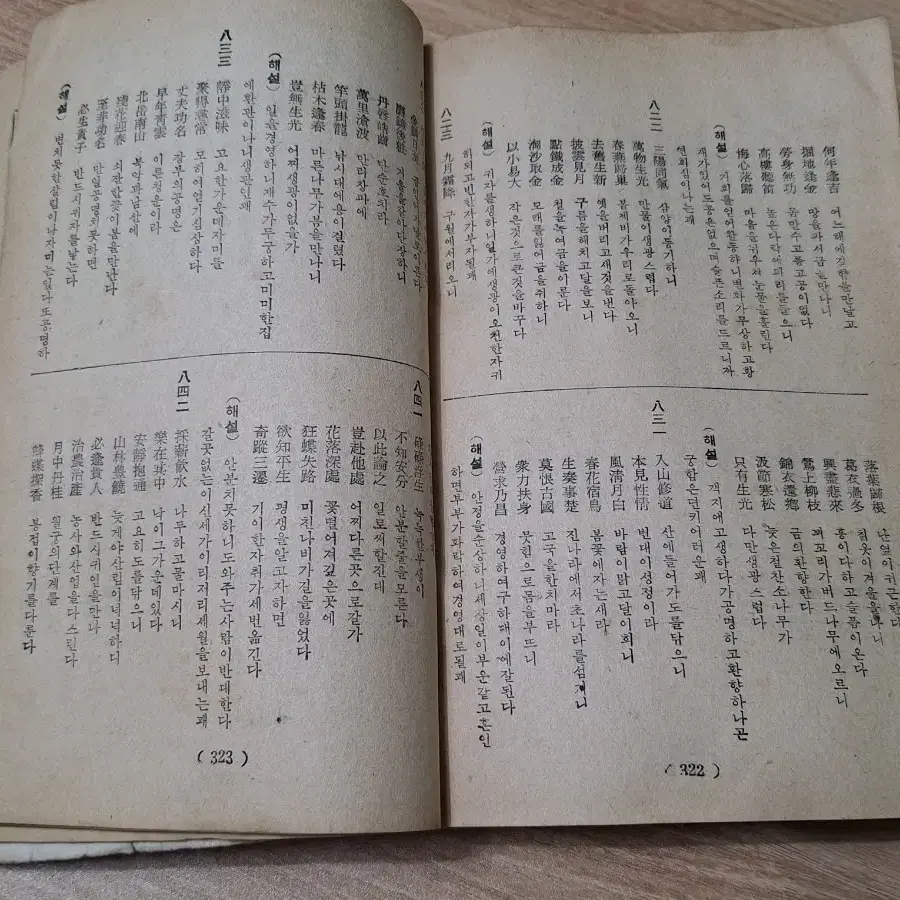 何年逢吉 어느해에길함을만날고
掘地逢金 땅을파서금을만나니
勞身無功 몸만수고롭고공이없다
高樓聽笛 높은다락에피리를들으니
悔心落歸 마음을
(해설) 기회를얻어활동하니변화가무상하고황
재가있어도공은없으며슬픈소리를드르니자
연회심이나는괘
八二二
三陽同氣 삼양이동기하니
萬物生光 만물이생광스럽다
春燕歸巢 봄제비가우리로돌아오니
去舊生新 옛을버리고새것을맨다
披雲見月 구름을헤치고달을보니
點鐵成金 철을녹여금을이룬다
淘沙取金 모래를일어금을취하니
以小易大 작은것으로큰것을바꾸다
(해설) 귀자를생하니일가에생광이오천한자귀
히되고빈한자가부자될괘
八二三
九月霜降 구월에서리오니
落葉歸根
葛衣過冬 칡옷이겨울을나니
興盡悲來 흥이다하고슬픔이온다
鶯上柳枝 꾀꼬리가버드나무에오르니
錦衣還鄉 금의환향한다
波節寒松 늦은철찬소나무가
只有生光 다만생광스럽다
(해설) 객지에고생하다가공명하고환향하나곤
궁함은면키어려운괘
八三一
入山修道 산에들어가도를닦으니
本見性情 빈대이성정이라
風淸月白 바람이맑고달이희니
春花宿鳥 봄꽃에자는새라
生秦事楚 진나라에서초나라를섬기니
莫恨古國 고국을한치마라
衆力扶身 뭇힌으로몸을부뜨니
營求乃昌 경영하여구하대이에잘된다
(해설) 안정을순상하니세상일이부운같고혼인
하면부부가화락하여경영대로될괘
( 322 )
丹脣皓齒 단순호치라
萬里滄波 만리창파에
竿頭掛龍 낚시대에용이걸렸다
枯木逢春 마른나무가봄을만나니
豈無生光 어찌생광이없을가
(해설) 일을경영하니재수가두궁하고미미한집
에환관이나니생광인괘
八三三
靜中滋味 고요한가운데자미를
聚得尋常 모히여얻기심상하다
丈夫功名 장부의공명은
早年靑雲 이른청운이라
北岳南山 북악과남산에
殘花迎春 쇠잔한꽃이봄을만난다
至非功名 만일공명이못하면
必生貴子 반드시귀자를낳는다
(해설) 변치못한살림이나자미는있다또공명하
八四一
碌碌浮生 녹녹한부생이
不知安分 안분할줄을모른다
以此論之 일로써할진대
豈赴他處 어찌다른곳으로갈가
花落深處 꽃떨어져깊은곳에
狂蝶失路 미친나비가길을잃었다
欲知平生 평생을알고자하면
奇蹤三遷 기이한자취가세번옮긴다
(해설) 안분치못하니도와주는사람이반대한다
갈곳없는이신세가이리저리세월을보내는괘
八四二
採薪飮水 나무하고물마시니
樂在其中 낙이그가운데있다
安靜抱通 고요히도를닦으니
山林農饒 늦게야산림이넉넉하디
必逢貴人 반드시귀인을만나
治農治產 농사와산업을다스린다
月中丹桂 월궁의단계를
蜂蝶探香 봉접이향기를다툰다
( 323 )